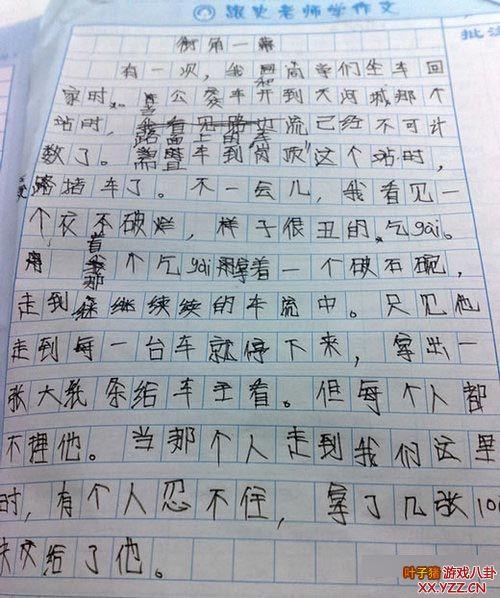 跟史老师学作文
批注
街角一幕
有一次，我和同学们坐车回
家时，当公交车开到天河城那个
站时，路上的车流已经不可计
数了。当车到岗顶这个站时，
堵车了。不一会儿，我看见一
个衣不破烂，样子很丑的乞gai。
那个乞gai拿着一个破石碗，
走到继续续的车流中。只见他
走到每一台车就停下来，拿出一
张大纸条给车主看。但每个人都
不理他。当那个人走到我们这里
时，有个人忍不住，拿了几张100
块交给了他。
叶子猪 游戏八卦
XX.YZZ.CN